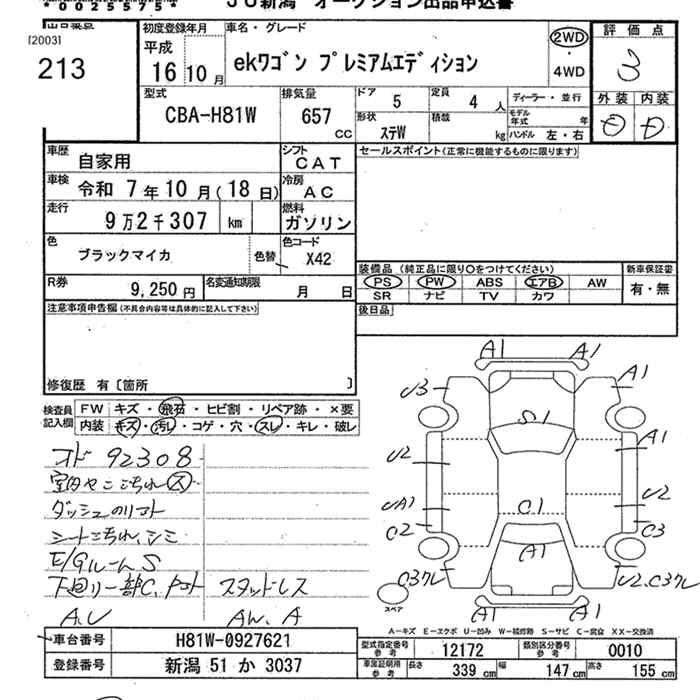 *0025575*
JU新潟 オークション出品申込書
出品番号
[2003]
213
初度登録年月
平成
16 10 月
車名・グレード
ekﾜｺﾞﾝ ﾌﾟﾚﾐｱﾑｴﾃﾞｨｼｮﾝ
2WD
・
4WD
評価点
3
外装 内装
D D
型式
CBA-H81W
排気量
657
CC
ドア 5
定員 4 人
形状 ｽﾃW
積載 kg
ディーラー・並行
モデル年式 年
ハンドル 左・右
車歴
自家用
シフト
CAT
セールスポイント(正常に機能するものに限ります)
車検
令和 7年10月(18日)
冷房
AC
走行
9万2千307 km
燃料
ガソリン
色
ブラックマイカ
色替
色コード
X42
R券
9,250 円
名変通知期限
月 日
装備品 (純正品に限り○をつけてください)
新車保証書
PS PW ABS エアB AW
SR ナビ TV カワ
有・無
後日品
注意事項申告欄(不具合内容等は具体的に記入して下さい)
修復歴 有〔箇所 〕
検査員
記入欄
FW キズ・飛石・ヒビ割・リペア跡・×要
内装 キズ・汚レ・コゲ・穴・スレ・キレ・破レ
オド 92308
室内ヤニこげ汚れ ス
ダッシュのリマト
シートこげれ、シミ
E/Gルーム S
下回り一部C、マフト スタッドレス
A,U AW, A
A1 A1
U3 A1
S1
U2 A1
UA1 C1 U2
C2 C3
A1
C3クレ U2.C3クレ
スペア
A1 A1
A－キズ E－エクボ U－凹み W－補修跡 S－サビ C－腐食 XX－交換済
車台番号
H81W-0927621
登録番号
新潟 51 か 3037
型式指定番号
参考
12172
類別区分番号
参考
0010
車庫証明用
参考
長さ 339 cm
幅 147 cm
高さ 155 cm